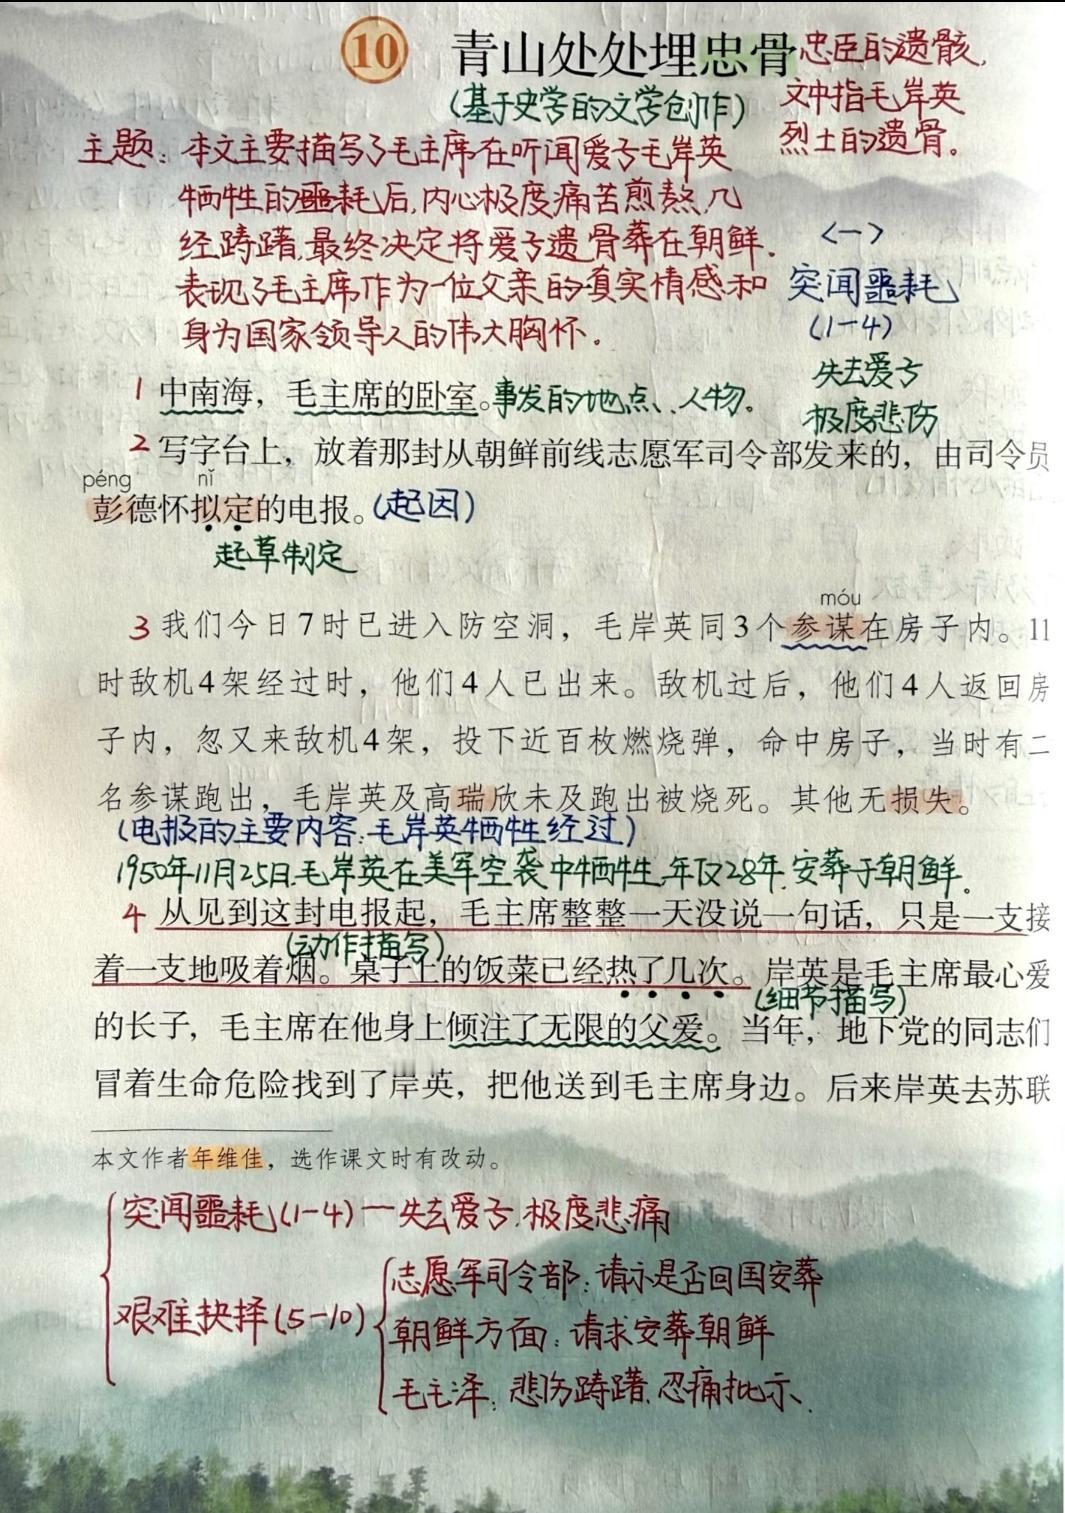 10 青山处处埋忠骨
忠臣的遗骸,
文中指毛岸英
烈士的遗骨。
(基于史学的文学创作)
主题：本文主要描写了毛主席在听闻爱子毛岸英
牺牲的噩耗后,内心极度痛苦煎熬,几
经踌躇,最终决定将爱子遗骨葬在朝鲜.
表现了毛主席作为一位父亲的真实情感和
身为国家领导人的伟大胸怀.
<一>
突闻噩耗
(1-4)
失去爱子
极度悲伤
1 中南海，毛主席的卧室。事发的地点、人物.
2 写字台上，放着那封从朝鲜前线志愿军司令部发来的，由司令员
péng nǐ
彭德怀拟定的电报。(起因)
起草制定
móu
3 我们今日7时已进入防空洞，毛岸英同3个参谋在房子内。11
时敌机4架经过时，他们4人已出来。敌机过后，他们4人返回房
子内，忽又来敌机4架，投下近百枚燃烧弹，命中房子，当时有二
名参谋跑出，毛岸英及高瑞欣未及跑出被烧死。其他无损失。
(电报的主要内容:毛岸英牺牲经过)
1950年11月25日.毛岸英在美军空袭中牺牲,年仅28年.安葬于朝鲜.
4 从见到这封电报起，毛主席整整一天没说一句话，只是一支接
(动作描写)
着一支地吸着烟。桌子上的饭菜已经热了几次。岸英是毛主席最心爱
(细节描写)
的长子，毛主席在他身上倾注了无限的父爱。当年，地下党的同志们
冒着生命危险找到了岸英，把他送到毛主席身边。后来岸英去苏联
本文作者年维佳，选作课文时有改动。
突闻噩耗(1-4)一失去爱子,极度悲痛
艰难抉择(5-10)
志愿军司令部:请示是否回国安葬
朝鲜方面:请求安葬朝鲜
毛主泽:悲伤踌躇.忍痛批示.